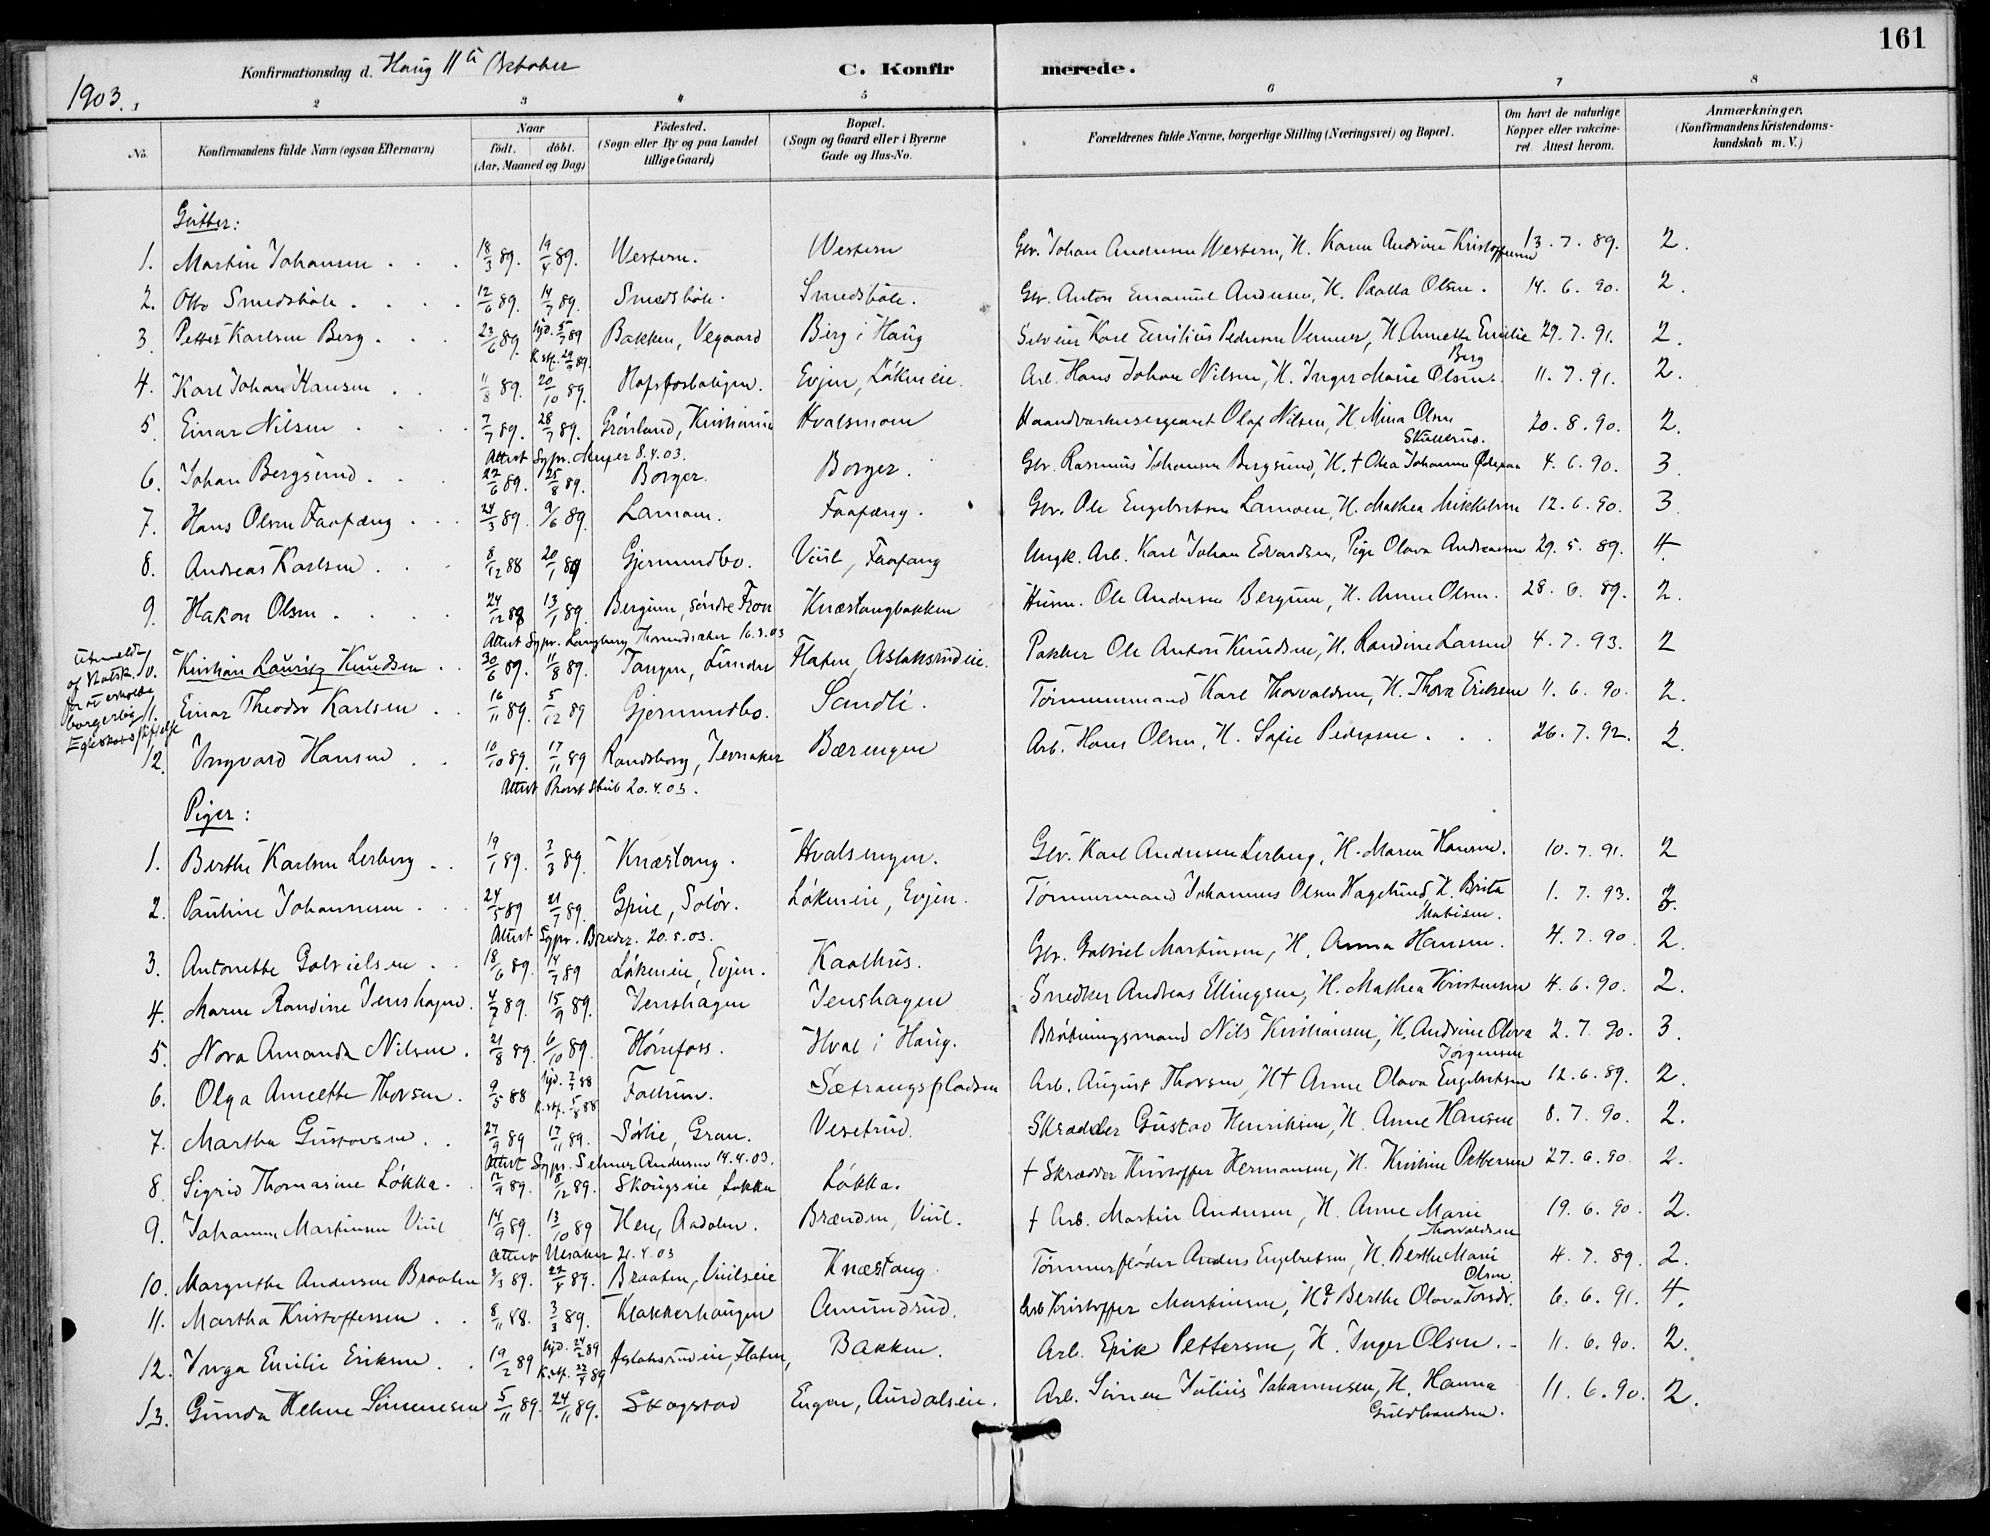 161
Konfirmationsdag d. Haug 11te Oktober C. Konfirmerede.
1903.
1 2 3 4 5 6 7 8
No. Konfirmandens fulde Navn (ogsaa Efternavn) Naar født. døbt. (Aar, Maaned og Dag) Fødested. (Sogn eller By og paa Landet tillige Gaard) Bopæl. (Sogn og Gaard eller i Byerne Gade og Hus-No. Forældrenes fulde Navne, borgerlige Stilling (Næringsvei) og Bopæl. Om havt de naturlige Kopper eller vaccineret. Attest herom. Anmærkninger. (Konfirmandens Kristendomskundskab m. V.)
Gutter:
1. Martin Johansen 18/3 89. 19/4 89. Western. Western Gbr. Johan Andersen Western, H. Karen Andrine Kristoffersen 13.7.89. 2.
2. Otto Smedsbøle 12/6 89. 14/7 89. Smedsbøle. Smedsbøle. Gbr. Anton Emanuel Andersen, H. Olsen. 14.6.90. 2.
3. Petter Karlsen Berg 23/6 89. hjd. 5/7 89 K. stf. 29/9 89. Bakken, Vegaard Berg i Haug Selveier Karl Emilius Pedersen H. Annette Emilie Berg 29.7.91. 2.
4. Karl Johan Hansen 11/8 89. 20/10 89. Hofsfosboligen. Evjen, Løkeneie. Arb. Hans Johan Nilsen, H. Inger Marie Olsen. 11.7.91. 2.
5. Einar Nilsen 7/7 89. 28/7 89. Grønland, Kristiania Hvalsmoen Haandverkersergeant Olaf Nilsen, H. Mina Olsen Skallerud. 20.8.90. 2.
Attest Sgpr. Meyer 8.4.03.
6. Johan Bergsund 22/6 89. 25/8 89. Borger. Borger. Gbr. Rasmus Johansen Bergsund, H. † Olea Johanne 4.6.90. 3.
7. Hans Olsen Faafæng 24/3 89. 9/6 89. Lamoen. Faafæng. Gbr. Ole Engebretsen Lamoen, H. Mathea Mikkelsen 12.6.90. 3
8. Andreas Karlsen 8/12 88 20/1 89 Gjermundbo. Viul, Faafæng Ungk. Arb. Karl Johan Edvardsen, Pige Olava Andreasen 29.5.89. 4.
9. Hakon Olsen 24/12 88 13/1 89. Bergum, søndre Fron Knæstangbakken Husm. Ole Andersen Bergum, H. Anne Olsen. 28.6.89. 2.
Attest Sgpr. Langberg 16.3.03
Utmeldt af Statsk. for at erholde borgerlig Egteskabsstiftelse
10. Kristian Lauritz Knudsen 30/6 89. 11/8 89. Tangen, Lunder Flaten, Aslaksrudeie. Pakker Ole Anton Knudsen, H. Randine Larsen 4.7.93. 2
11. Einar Theodor Karlsen 16/11 89. 5/12 89 Gjermundbo. Sandli. Tømmermand Karl Thorvaldsen, H. Thora Eriksen 11.6.90. 2.
12. Ingvard Hansen 10/10 89. 17/11 89 Randsborg, Jevnaker Bærengen Arb. Hans Olsen, H. Sofie Pedersen. 26.7.92. 2.
Attest Provst 20.4.03.
Piger:
1. Berthe Karlsen Lerberg 19/1 89. 3/3 89. Knæstang. Hvalsengen. Gbr. Karl Andersen Lerberg, H. Maren Hansen. 10.7.91. 2
2. Pauline Johannesen 24/5 89 21/7 89. Solør. Løkeneie, Evjen. Tømmermand Johannes Olsen Hagelund, H. Brita Matisen. 1.7.93. 3.
Attest Sgpr. 20.5.03.
3. Antonette Gabrielsen 18/6 89. 14/7 89 Løkeneie, Evjen. Kaalhus. Gbr. Gabriel Martinsen, H. Anna Hansen. 4.7.90. 2.
4. Maren Randine Jenshagen. 4/7 89. 15/9 89. Jenshagen Jenshagen Snedker Andreas Ellingsen, H. Mathea Kristensen 4.6.90. 2.
5. Nora Amanda Nilsen. 21/8 89. 6/10 89. Hønefoss. Hval i Haug. Brøtningsmand Nils Kristiansen, H. Andrine Olava Jørgensen 2.7.90. 3.
6. Olga Annette Thorsen. 9/5 88 hjd. 2/7 88 K. stf. 5/8 88 Follum. Sætrangspladsen Arb. August Thorsen, H † Anne Olava Engebretsen 12.6.89. 2.
7. Martha Gustavsen. 27/9 89 17/11 89. Sørlie, Gran. Vesetrud. Skrædder Gustav Henriksen, H. Anne Hansen 8.7.90. 2.
Attest Sgpr. Selmer Andersen 14.4.03.
8. Sigrid Thomasine Løkka. 12/9 89. 8/12 89. Skougseie, Løkka Løkka. † Skrædder Kristoffer Hermansen, H. Kristine Pettersen 27.6.90. 2.
9. Johanne Martinsen Viul 14/9 89. 13/10 89 Hen, Aadalen. Brænden, Viul. † Arb. Martin Andersen, H. Anne Marie Thorvaldsen 19.6.90. 2.
Attest 21.4.03
10. Margrethe Andersen Braaten 3/3 89. 22/4 89. Braaten, Viulseie Knæstang Tømmerfløder Anders Engebretsen, H. Berthe Marie Olsen. 4.7.89. 2.
11. Martha Kristoffersen 8/11 88. 3/3 89. Klækkerhaugen Amundrud. Arb Kristoffer Martinsen, H. Berthe Olava Torsdr. 6.6.91. 4.
12. Inga Emilie Eriksen. 19/2 89 hjd. 24/2 89 K. stf. 22/4 89 Aslaksrudeie, Flaten, Bakken. Arb. Erik Pettersen, H. Inger Olsen. 11.6.90. 2.
13. Gunda Helene Simensen 5/11 89. 24/11 89. Skogstad Engen, Aurdalseie. Arb. Simen Julius Johannesen, H. Hanna Guldbrandsen. 11.6.90. 2.